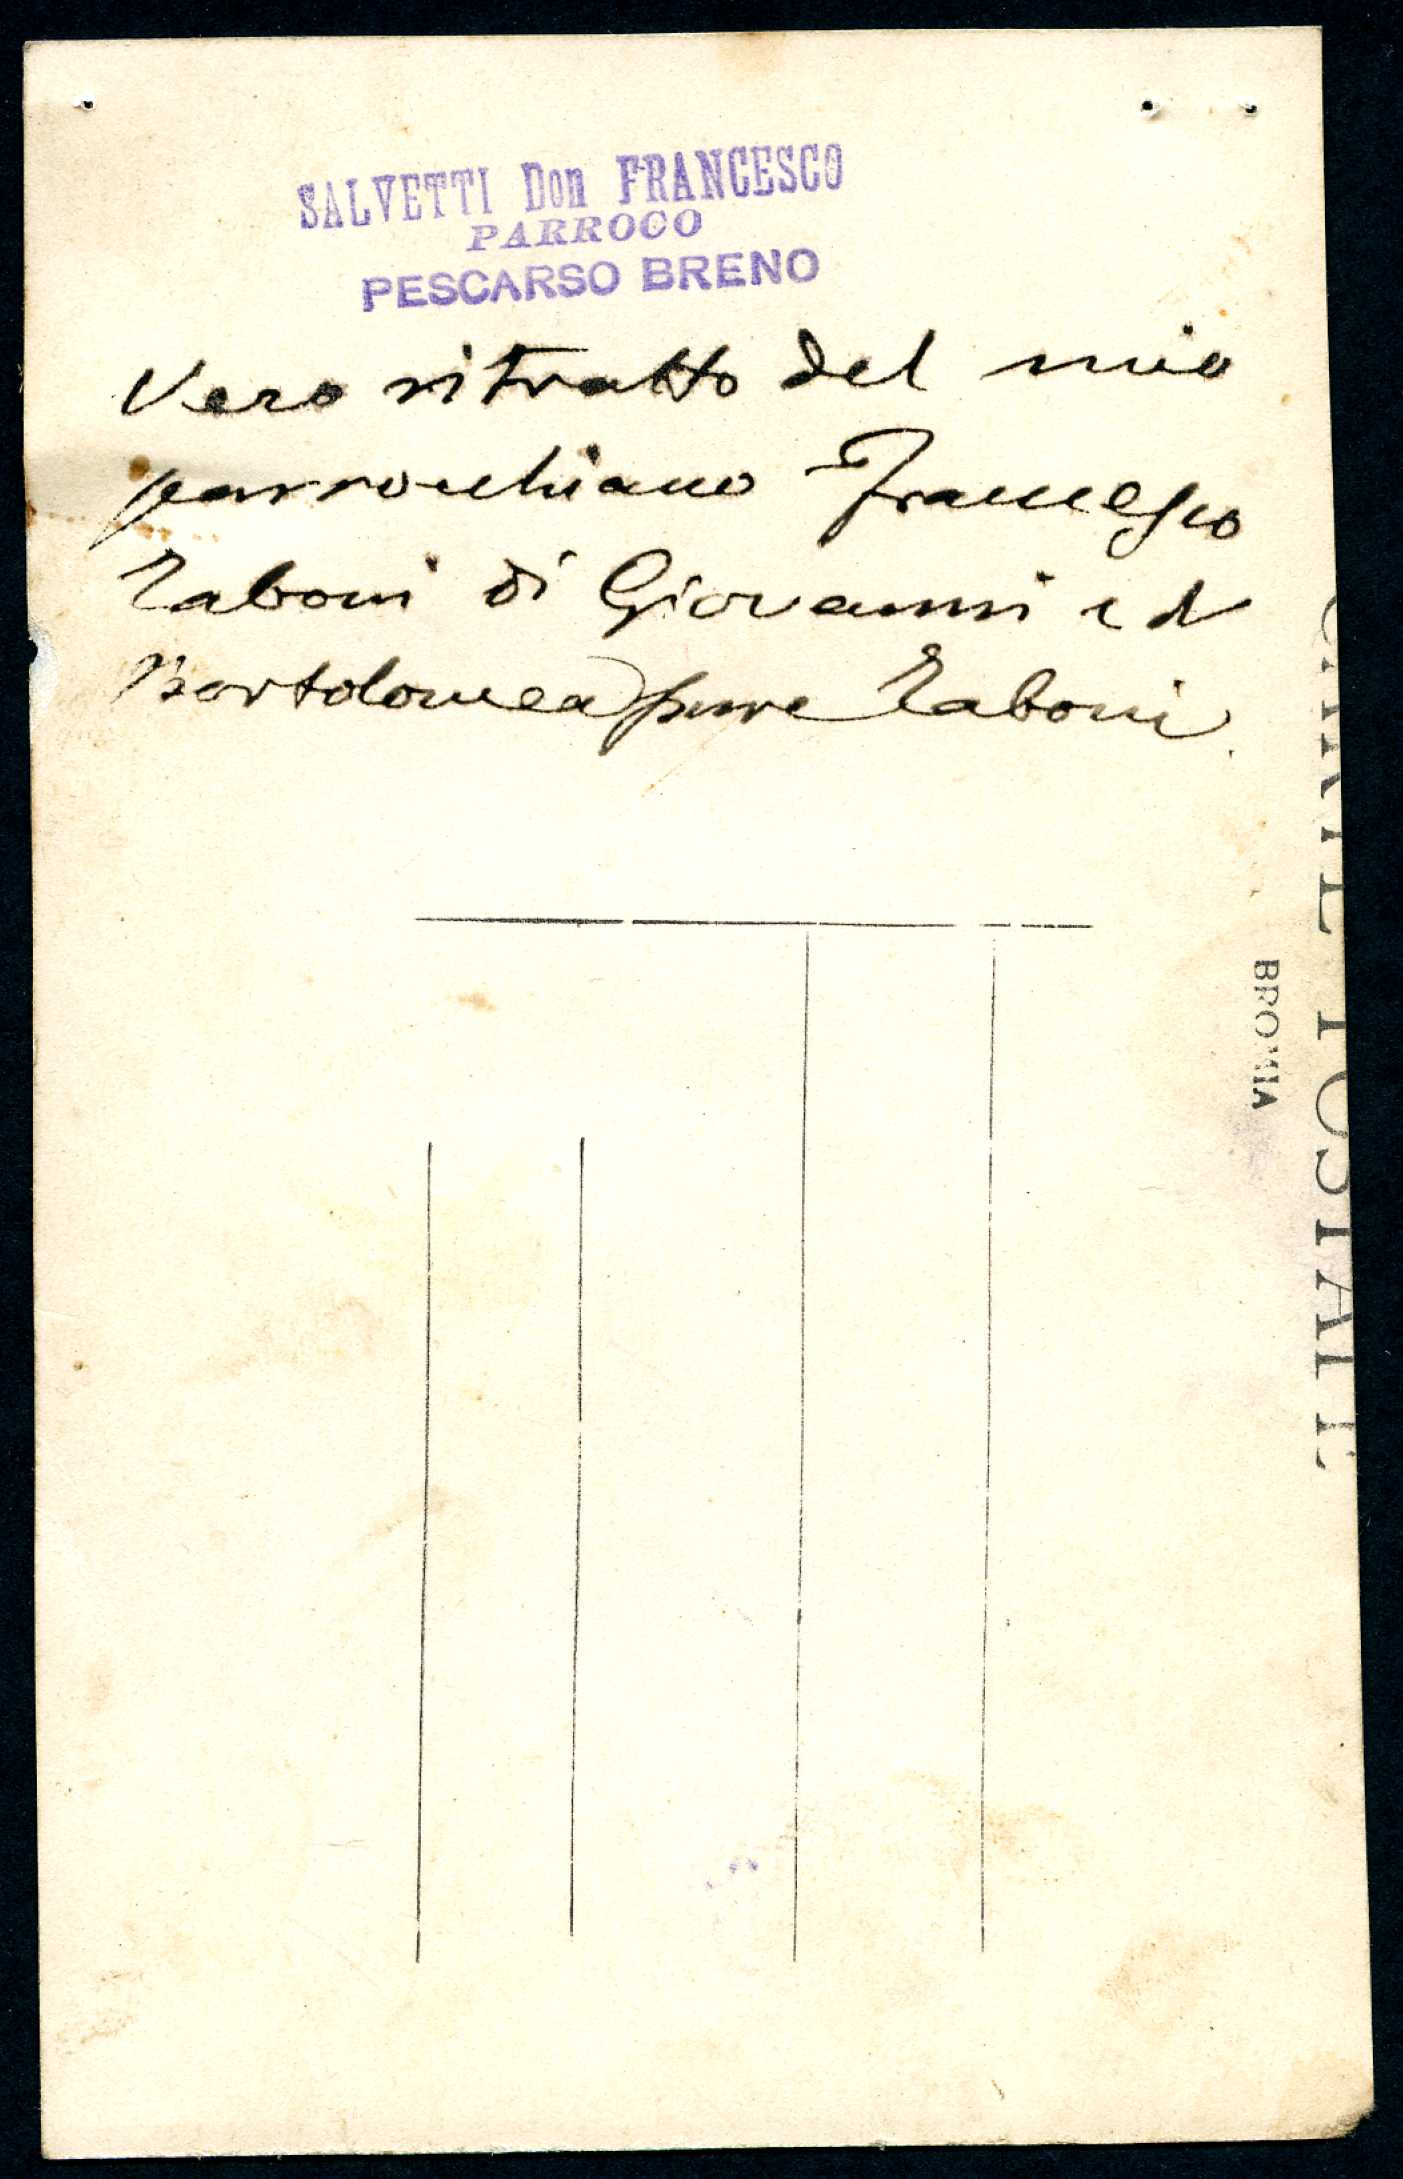 SALVETTI Don FRANCESCO
PARROCO
PESCARSO BRENO
Vero ritratto del mio
parrocchiano Francesco
Taboni di Giovanni e di
Bartolomea pure Taboni
CARTE POSTALE
BROMIA